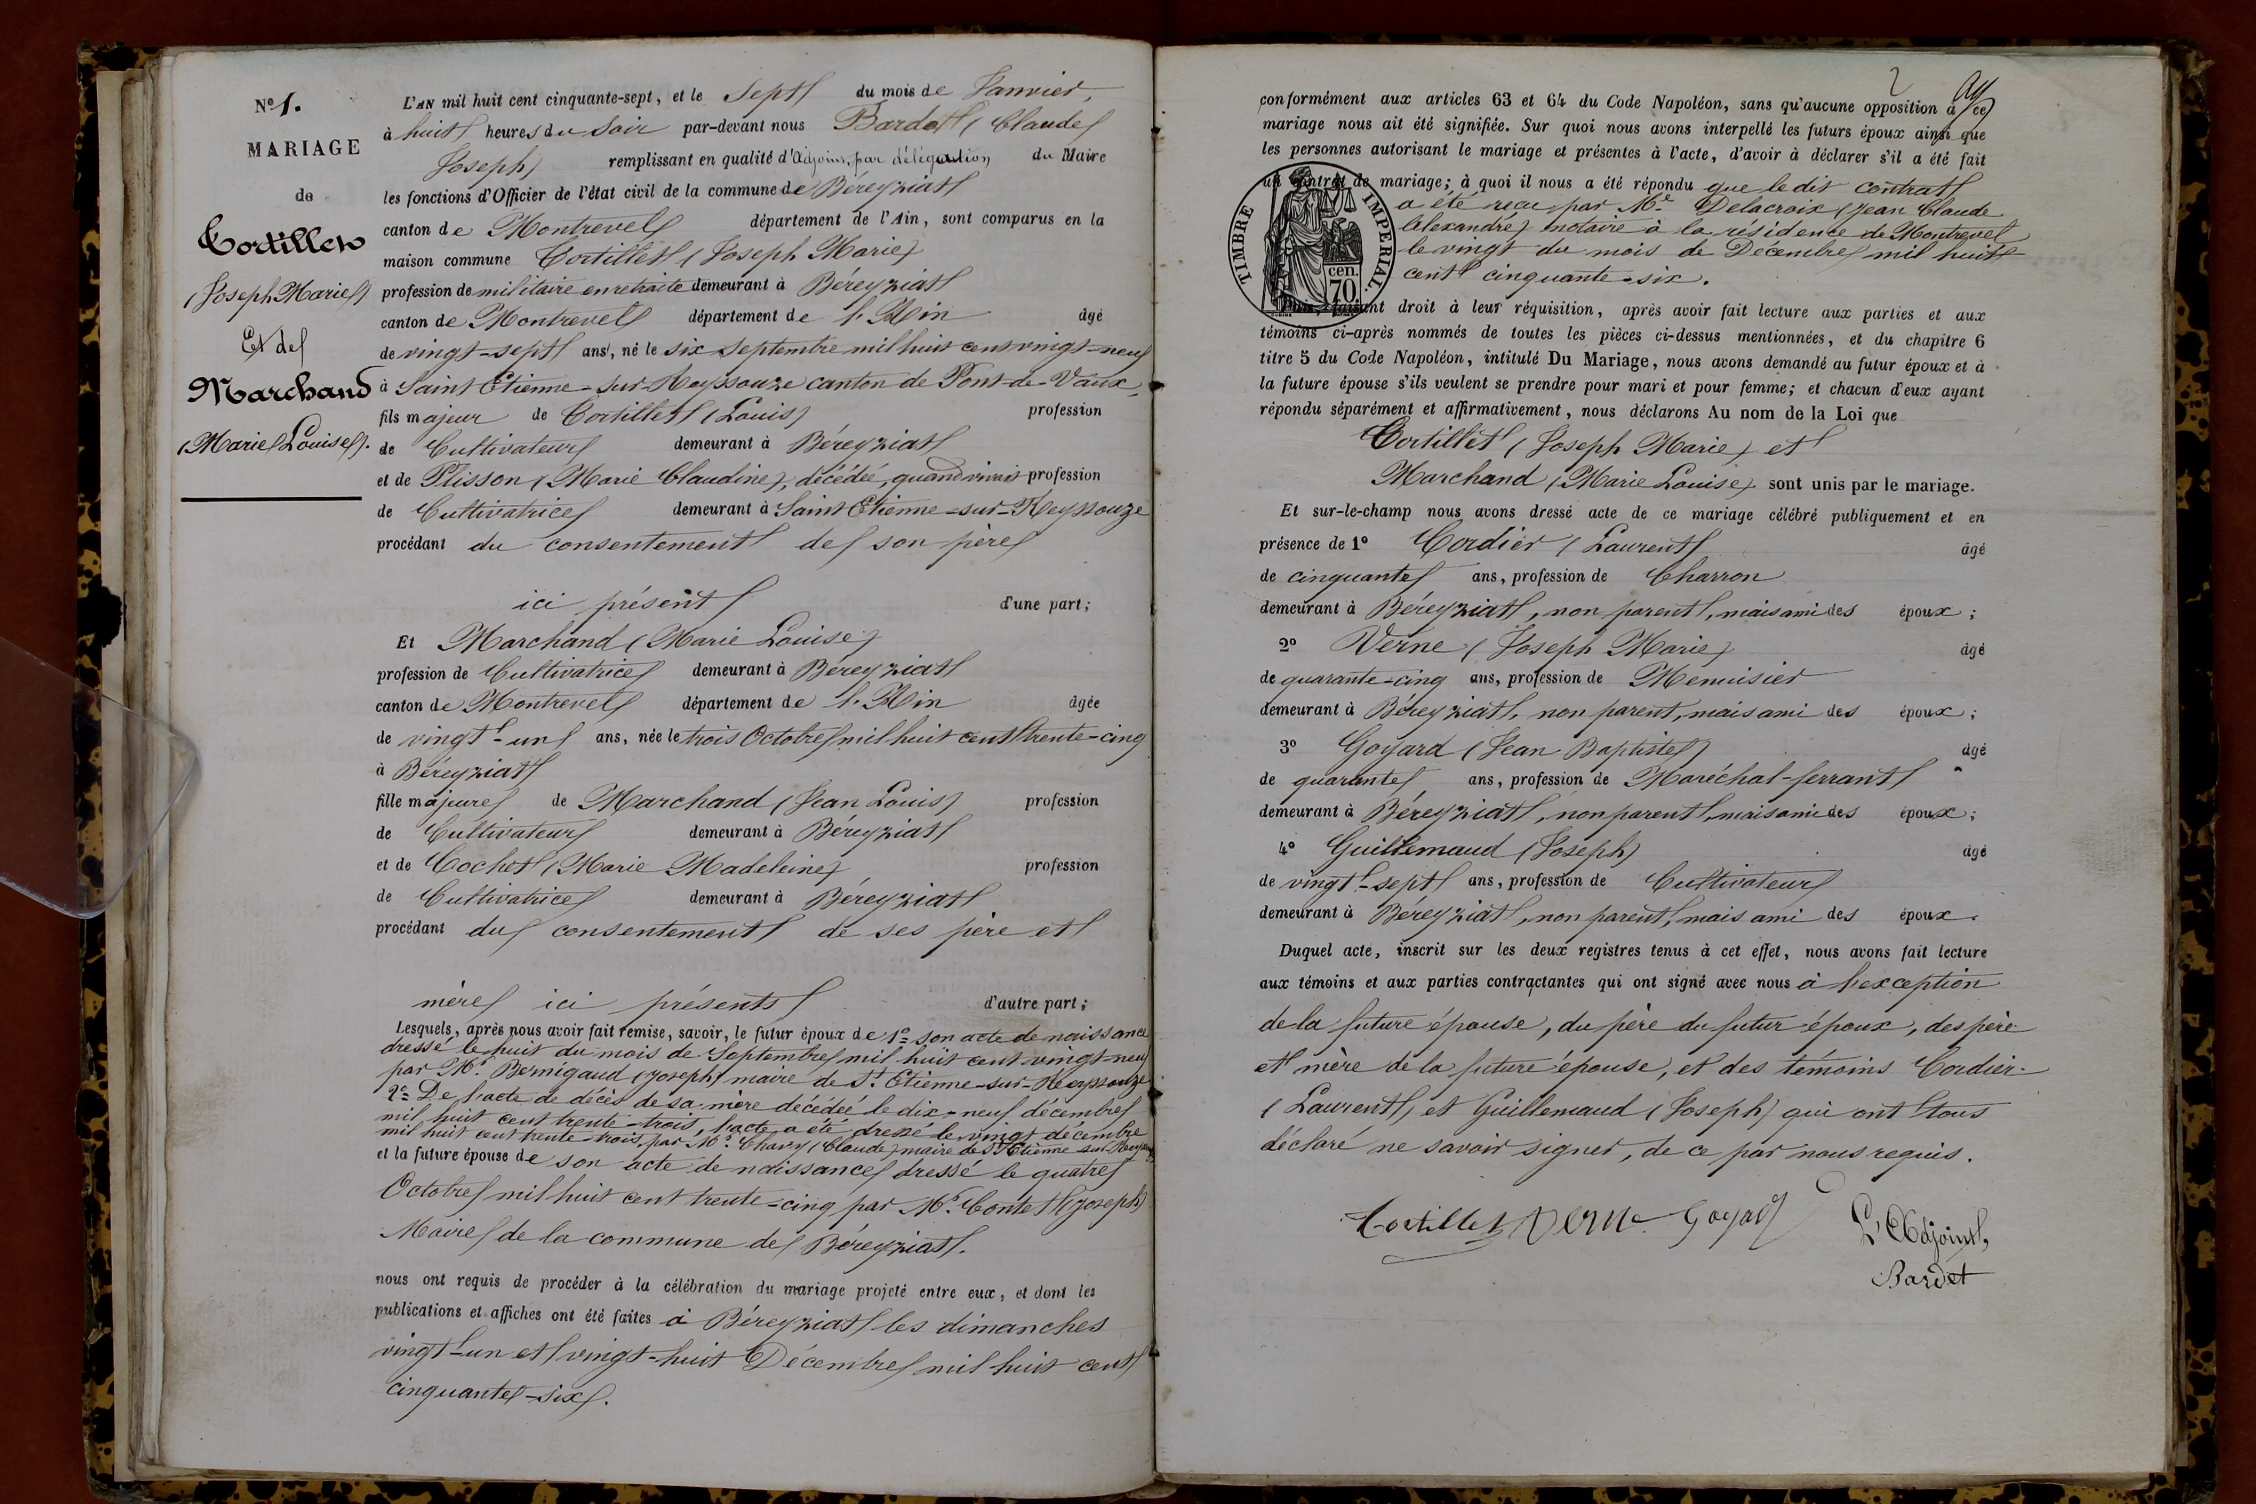 N° 1.
MARIAGE
de
Cortillet
(Joseph Marie)
Et de
Marchand
(Marie Louise).
L'AN mil huit cent cinquante-sept, et le Sept du mois de Janvier,
à huit heures du Soir par-devant nous Bardet (Claude
Joseph) remplissant en qualité d'Adjoint, par délégation du Maire
les fonctions d'Officier de l'état civil de la commune de Béreyziat
canton de Montrevel département de l'Ain, sont comparus en la
maison commune Cortillet (Joseph Marie)
profession de militaire en retraite demeurant à Béreyziat
canton de Montrevel département de l'Ain âgé
de vingt-sept ans, né le six Septembre mil huit cent vingt-neuf
à Saint Etienne-sur-Reyssouze canton de Pont-de-Vaux,
fils majeur de Cortillet (Louis) profession
de Cultivateur demeurant à Béreyziat
et de Plisson (Marie Claudine), décédée, quand vivait profession
de Cultivatrice demeurant à Saint Etienne-sur-Reyssouze
procédant du consentement de son père
ici présent d'une part;
Et Marchand (Marie Louise)
profession de Cultivatrice demeurant à Béreyziat
canton de Montrevel département de l'Ain âgée
de vingt-un ans, née le trois Octobre mil huit cent trente-cinq
à Béreyziat
fille majeure de Marchand (Jean Louis) profession
de Cultivateur demeurant à Béreyziat
et de Cochet (Marie Madeleine) profession
de Cultivatrice demeurant à Béreyziat
procédant du consentement de ses père et
mère ici présents d'autre part;
Lesquels, après nous avoir fait remise, savoir, le futur époux de 1° son acte de naissance
dressé le huit du mois de Septembre mil huit cent vingt neuf
par Mr. Bernigaud (Joseph) maire de St. Etienne-sur-Reyssouze
2° De l'acte de décès de sa mère décédée le dix-neuf décembre
mil huit cent trente-trois, l'acte a été dressé le vingt décembre
mil huit cent trente-trois, par Mr. Chavy (Claude) maire de St Etienne sur Reyssouze
et la future épouse de son acte de naissance dressé le quatre
Octobre mil huit cent trente-cinq par Mr. Contet (Joseph)
Maire de la commune de Béreyziat.
nous ont requis de procéder à la célébration du mariage projeté entre eux, et dont les
publications et affiches ont été faites à Béreyziat les dimanches
vingt-un et vingt-huit Décembre mil huit cent
cinquante-six.
2
conformément aux articles 63 et 64 du Code Napoléon, sans qu'aucune opposition à ce
mariage nous ait été signifiée. Sur quoi nous avons interpellé les futurs époux ainsi que
les personnes autorisant le mariage et présentes à l'acte, d'avoir à déclarer s'il a été fait
un contrat de mariage; à quoi il nous a été répondu que le dit contrat
a été reçu par Me. Delacroix (Jean Claude
Alexandre) notaire à la résidence de Montrevel
le vingt du mois de Décembre mil huit
cent cinquante-six.
TIMBRE IMPERIAL.
70 cen.
Puis, faisant droit à leur réquisition, après avoir fait lecture aux parties et aux
témoins ci-après nommés de toutes les pièces ci-dessus mentionnées, et du chapitre 6
titre 5 du Code Napoléon, intitulé Du Mariage, nous avons demandé au futur époux et à
la future épouse s'ils veulent se prendre pour mari et pour femme; et chacun d'eux ayant
répondu séparément et affirmativement, nous déclarons Au nom de la Loi que
Cortillet (Joseph Marie) et
Marchand (Marie Louise) sont unis par le mariage.
Et sur-le-champ nous avons dressé acte de ce mariage célébré publiquement et en
présence de 1° Cordier (Laurent) âgé
de cinquante ans, profession de Charron
demeurant à Béreyziat, non parent, mais ami des époux;
2° Verne (Joseph Marie) âgé
de quarante-cinq ans, profession de Menuisier
demeurant à Béreyziat, non parent, mais ami des époux;
3° Goyard (Jean Baptiste) âgé
de quarante ans, profession de Maréchal-ferrant
demeurant à Béreyziat, non parent, mais ami des époux;
4° Guillemaud (Joseph) âgé
de vingt-sept ans, profession de Cultivateur
demeurant à Béreyziat, non parent, mais ami des époux.
Duquel acte, inscrit sur les deux registres tenus à cet effet, nous avons fait lecture
aux témoins et aux parties contractantes qui ont signé avec nous à l'exception
de la future épouse, du père du futur époux, des père
et mère de la future épouse, et des témoins Cordier
(Laurent) et Guillemaud (Joseph) qui ont tous
déclaré ne savoir signer, de ce par nous requis.
Cortillet Verne Goyard L'Adjoint,
Bardet